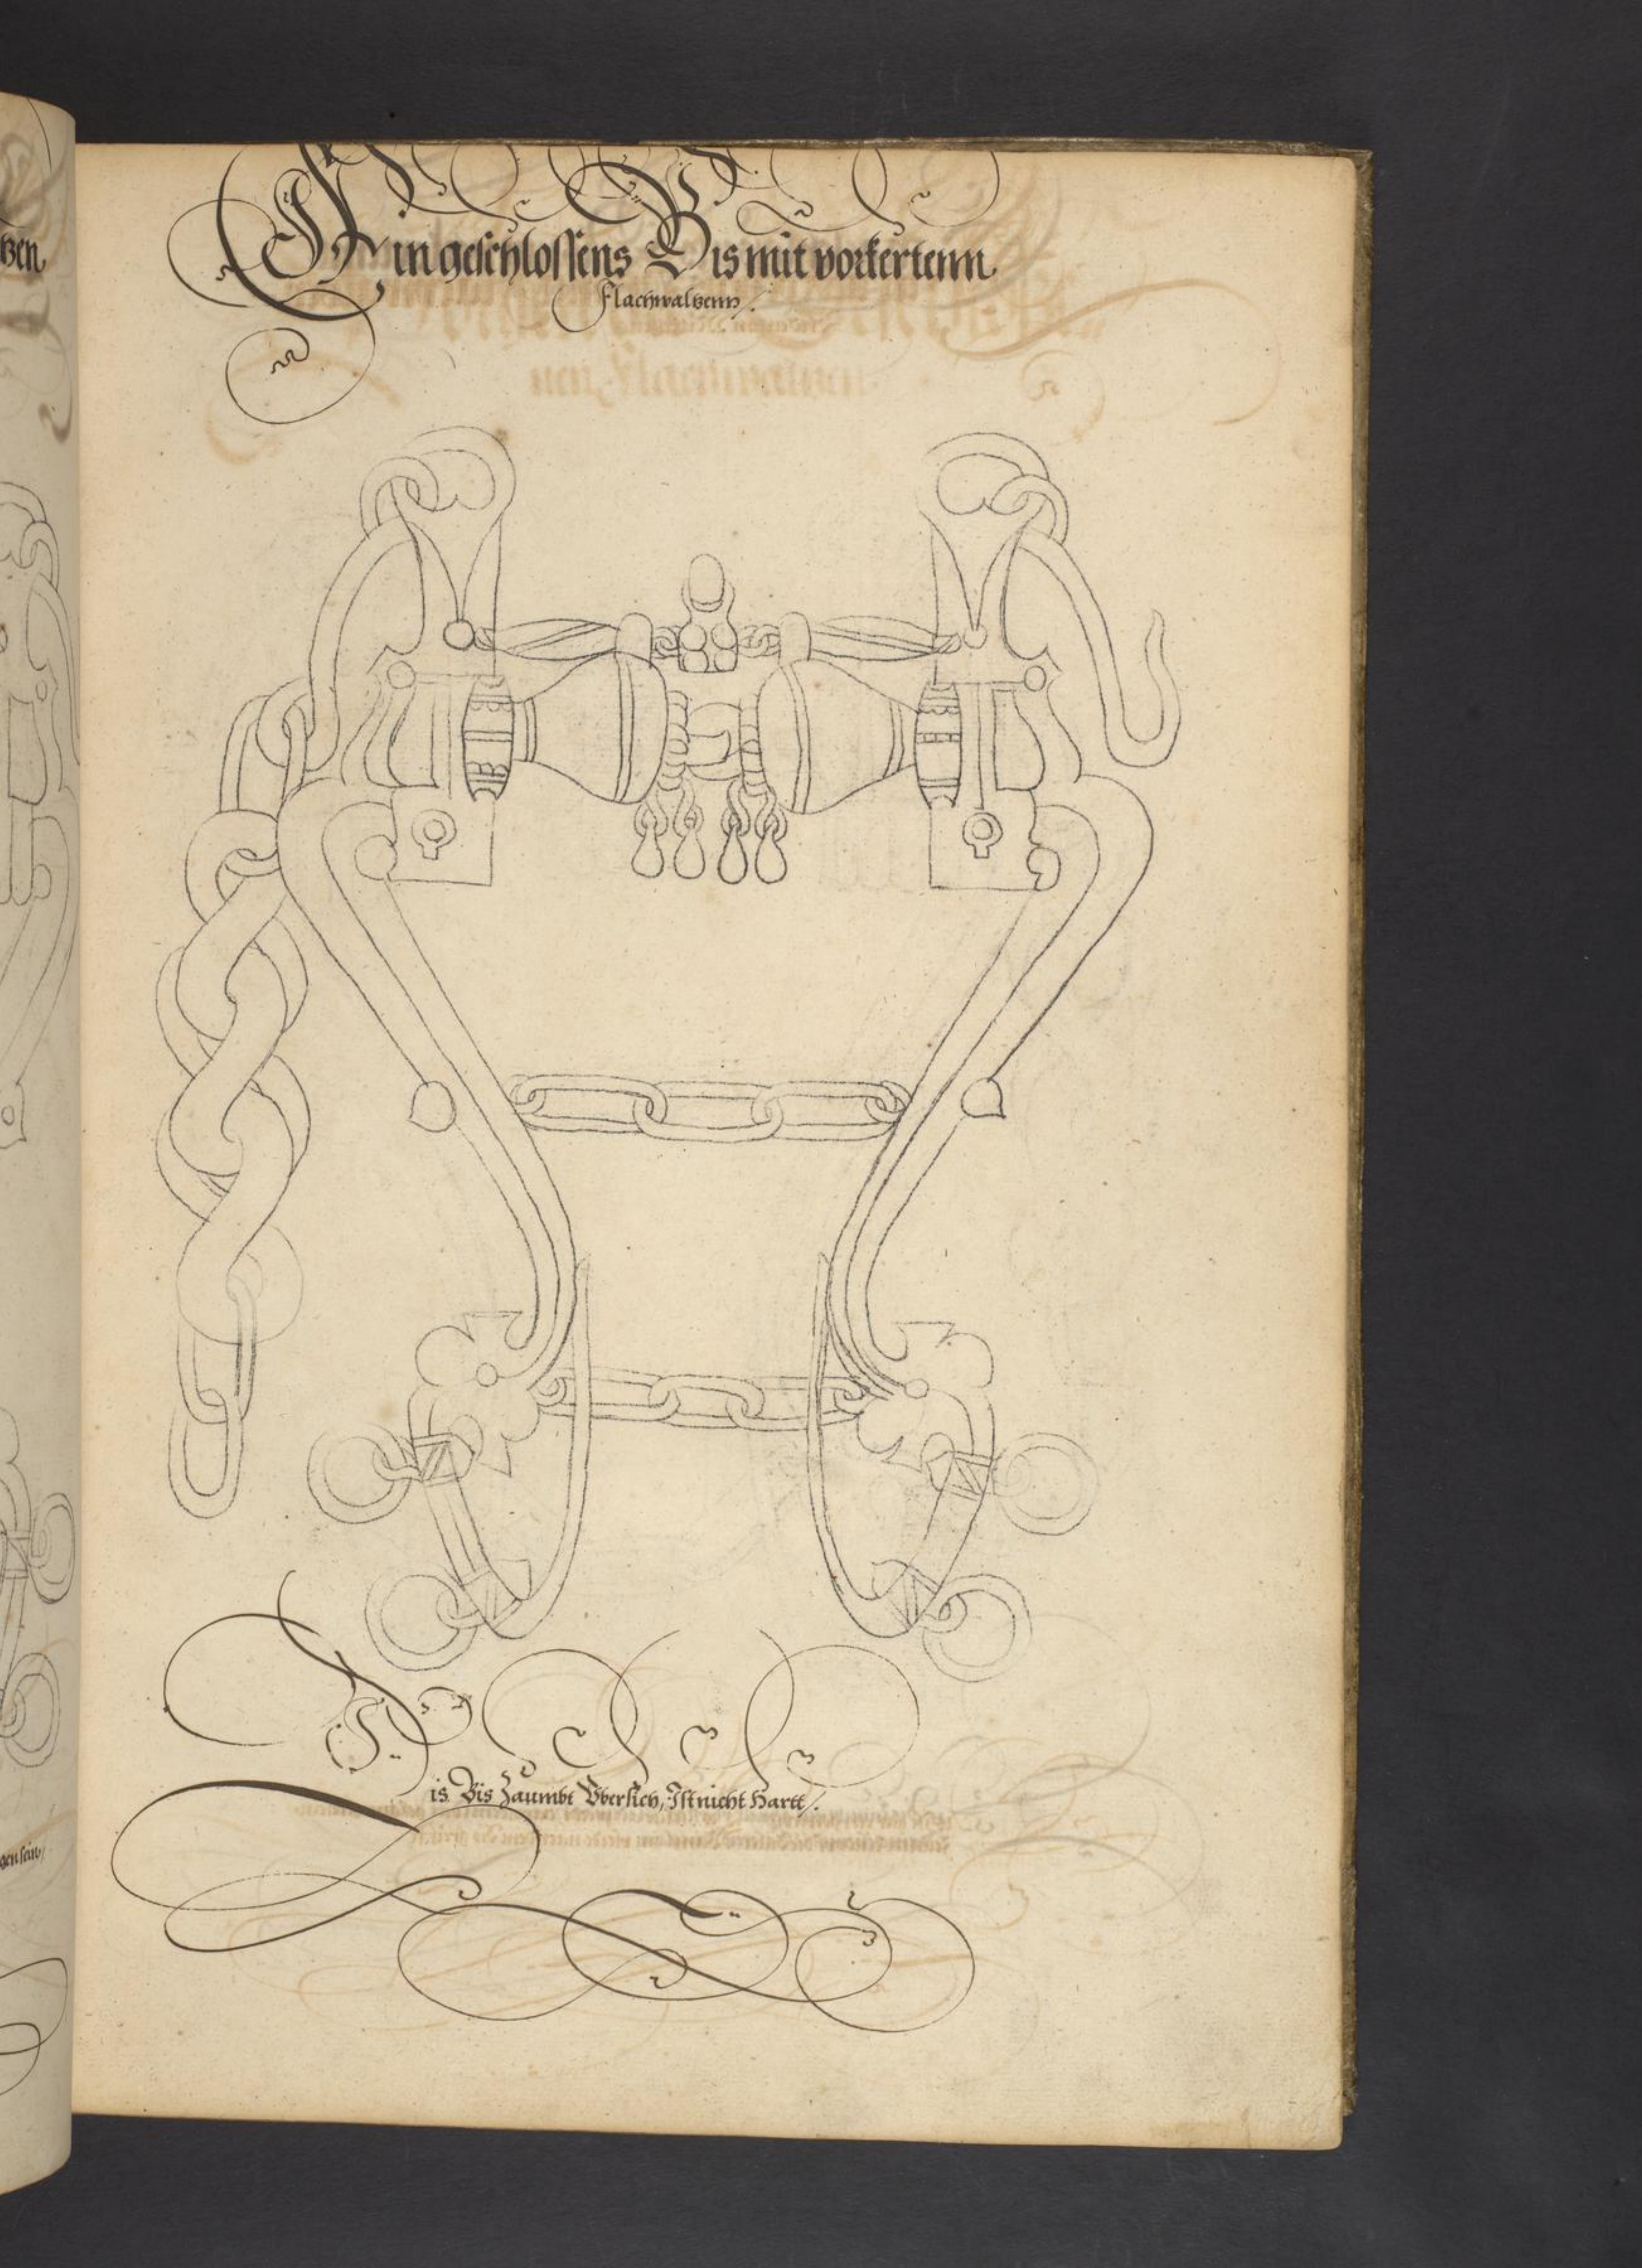 Ein geschlossens Bis mit vorkertenn
Flachwaltzenn /.
Dis Bis Zaumbt Vbersich, Ist nicht Hartt /.
tzen
gen sein /